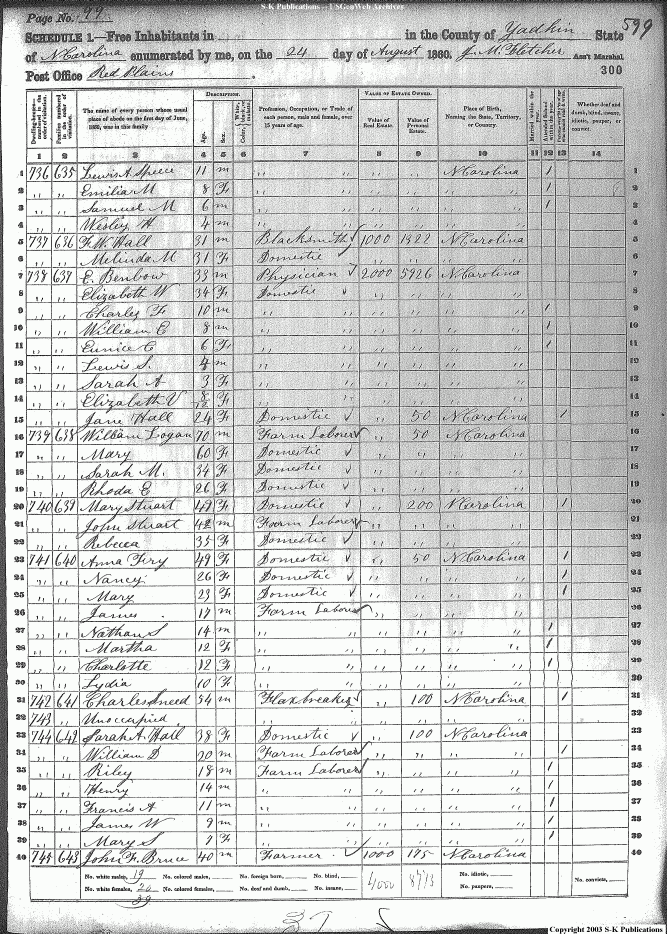 S-K Publications -- USGenWeb Archives
Page No. 99
599
SCHEDULE 1.—Free Inhabitants in in the County of Yadkin State
of N Carolina enumerated by me, on the 24 day of August 1860. J. M. Fletcher Ass't Marshal.
Post Office Red Plains 300
DESCRIPTION. VALUE OF ESTATE OWNED.
The name of every person whose usual place of abode on the first day of June, 1860, was in this family
Age. Sex.
Profession, Occupation, or Trade of each person, male and female, over 15 years of age.
Value of Real Estate. Value of Personal Estate.
Place of Birth, Naming the State, Territory, or Country.
Whether deaf and dumb, blind, insane, idiotic, pauper, or convict.
1 2 3 4 5 6 7 8 9 10 11 12 13 14
1 736 635 Lewis A. Speece 11 m " " N Carolina 1 1
2 " " Emilia M 8 F " " " " 1 2
3 " " Samuel M 6 m " " " " 1 3
4 " " Wesley H 4 m " " " " 4
5 737 636 F. W. Hall 31 m Blacksmith 1000 1322 N Carolina 5
6 " " Melinda M 31 F Domestic " " " " 6
7 738 637 E. Benbow 33 m Physician 2000 5926 N Carolina 7
8 " " Elizabeth W 34 F Domestic " " " " 8
9 " " Charley F 10 m " " " " 1 9
10 " " William E 8 m " " " " 1 10
11 " " Eunice C 6 F " " " " 1 11
12 " " Lewis S. 4 m " " " " 12
13 " " Sarah A 3 F " " " " 13
14 " " Elizabeth V 8/12 F " " " " 14
15 " " Jane Hall 24 F Domestic " 50 N Carolina 1 15
16 739 638 William Logan 70 m Farm Laborer " 50 N Carolina 16
17 " " Mary 60 F Domestic " " " " 17
18 " " Sarah M. 34 F Domestic " " " " 18
19 " " Rhoda E 26 F Domestic " " " " 19
20 740 639 Mary Stuart 49 F Domestic " 200 N Carolina 1 20
21 " " John Stuart 42 m Farm Laborer " " " " 21
22 " " Rebecca 35 F Domestic " " " " 22
23 741 640 Anna Fery 49 F Domestic " 50 N Carolina 1 23
24 " " Nancy 26 F Domestic " " " " 1 24
25 " " Mary 23 F Domestic " " " " 1 25
26 " " James 17 m Farm Laborer " " " " 26
27 " " Nathan S 14 m " " " " 1 27
28 " " Martha 12 F " " " " 1 28
29 " " Charlotte 12 F " " " " 1 29
30 " " Lydia 10 F " " " " 1 30
31 742 641 Charles Sneed 34 m Flaxbreaker " 100 N Carolina 1 31
32 743 " Unoccupied 32
33 744 642 Sarah A. Hall 38 F Domestic " 100 N Carolina 33
34 " " William D 20 m Farm Laborer " " " " 1 34
35 " " Riley 18 m Farm Laborer " " " " 1 35
36 " " Henry 14 m " " " " 1 36
37 " " Francis A 11 m " " " " 1 37
38 " " James W 9 m " " " " 1 38
39 " " Mary S 7 F " " " " 1 39
40 745 643 John F. Bruce 40 m Farmer 1000 175 N Carolina 40
No. white males, 19 No. colored males, No. foreign born, No. blind, 4000 No. idiotic, No. convicts,
No. white females, 20 No. colored females, No. deaf and dumb, No. insane, No. paupers,
39
Copyright 2003 S-K Publications